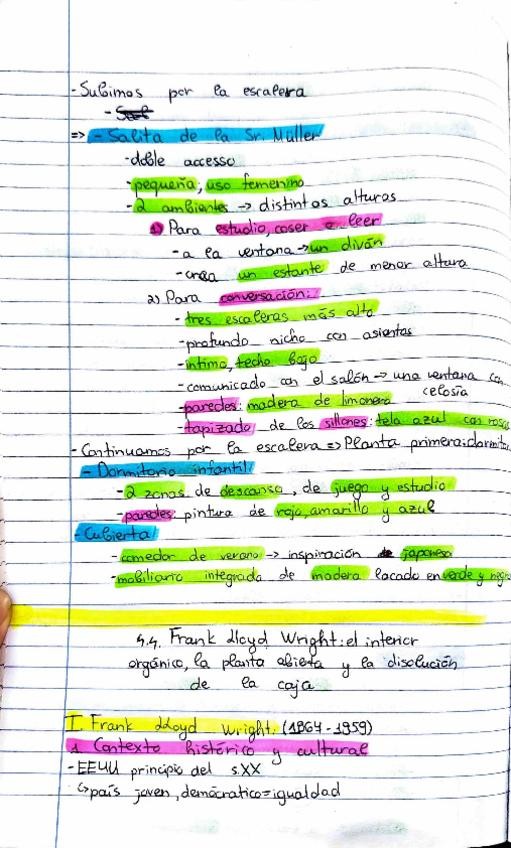 - Subimos por la escalera
=> - Salita de la Sr. Müller
- doble acceso
- pequeña, uso femenino
- 2 ambientes → distintos alturas
1) Para estudio, coser o leer
- a la ventana → un diván
- crea un estante de menor altura
2) Para conversación:
- tres escaleras más alto
- profundo nicho con asientos
- íntimo, techo bajo
- comunicado con el salón → una ventana con
celosía
- paredes: madera de limonero
- tapizado de los sillones: tela azul con rosas
- Continuamos por la escalera => Planta primera: dormito
- Dormitorio infantil
- 2 zonas de descanso, de juego y estudio
- paredes pintura de rojo, amarillo y azul
- Cubierta
- comedor de verano → inspiración japonesa
- mobiliario integrado de madera lacado en verde y negro
4.4. Frank Lloyd Wright: el interior
orgánico, la planta abierta y la disolución
de la caja
I. Frank Lloyd Wright. (1867-1959)
1. Contexto histórico y cultural
- EEUU principio del s.XX
↳ país joven, demócratico = igualdad